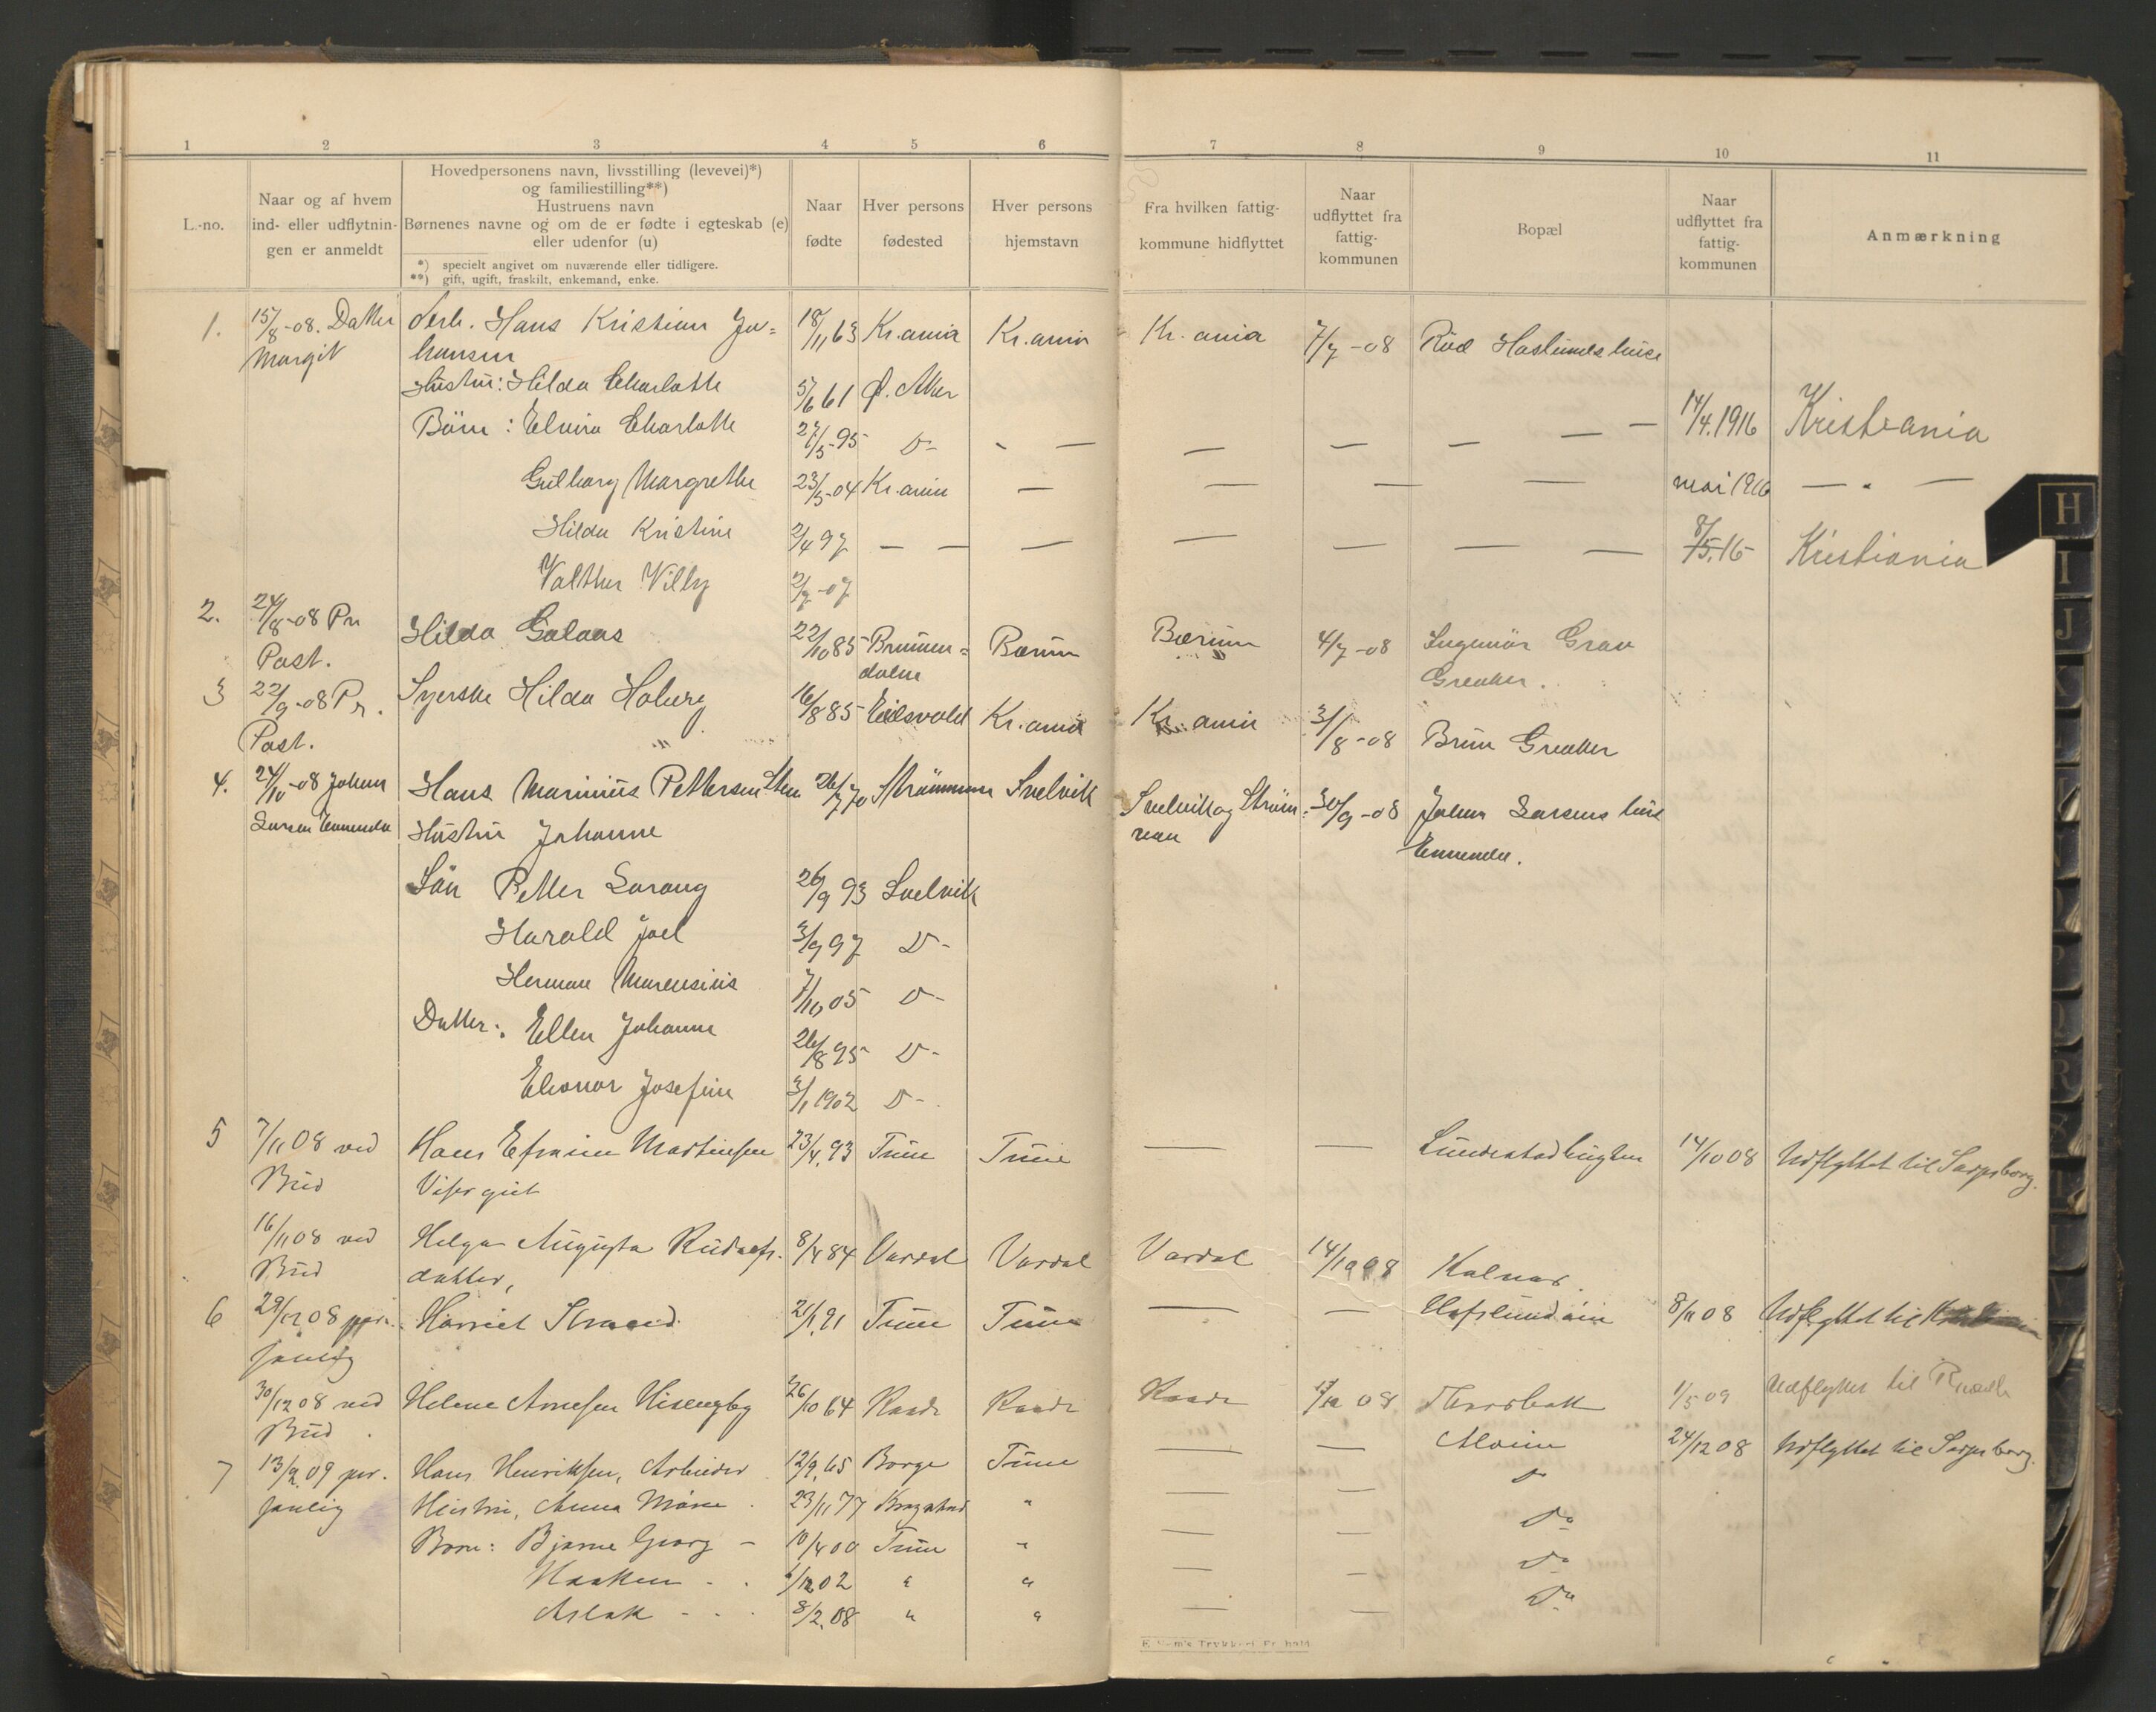 1 2 3 4 5 6 7 8 9 10 11
L.-no.
Naar og af hvem
ind- eller udflytnin-
gen er anmeldt
Hovedpersonens navn, livsstilling (levevei)*)
og familiestilling**)
Hustruens navn
Børnenes navne og om de er fødte i egteskab (e)
eller udenfor (u)
*) specielt angivet om nuværende eller tidligere.
**) gift, ugift, fraskilt, enkemand, enke.
Naar
fødte
Hver persons
fødested
Hver persons
hjemstavn
Fra hvilken fattig-
kommune hidflyttet
Naar
udflyttet fra
fattig-
kommunen
Bopæl
Naar
udflyttet fra
fattig-
kommunen
Anmærkning
1. 15/8-08. Datter Hans Kristian Jo= 18/11 63 Kr.ania Kr.ania Kr.ania 7/7-08 Röd Haslunds huse
Margit hansen
Hustru: Hilda Charlotte 5/6 61 Ø. Aker
Börn: Elvira Charlotte 27/5-95 D- - — — — — — — 14/4.1916 Kristiania
Gulborg Margrethe 23/5-04 Kr.ania — — — — mai 1916 — " —
Hilda Kristine 2/4 97 — — — — — — — 8/5.16 Kristiania
Valther Villy 2/7-07
2. 24/8-08 Pr Hilda Galaas 22/10 85 Brumun= Bærum Bærum 4/7-08 Ingeniör Grau
Post. dalen Greaker.
3 22/9-08 Pr. Syerske Hilda Hoberg 16/8 85 Eidsvold Kr.ania Kr.ania 31/8-08 Brun Greaker
Post.
4. 24/10-08 Johan Hans Marinius Pettersen Sten 26/7 70 Strömmen Svelvik Svelvik og Ström= 30/9-08 Johan Larsens hus
Larsen Hustru Johanne men
Sön Petter Lorang 26/9 93 Svelvik
Harald Joel 3/9 97 D-
Herman Marensius 7/10 05 D-
Datter: Ellen Johanne 26/8 95 D-
Elionor Josefine 3/1 1902 D-
5 7/11 08 ved Hans Efraim Martinsen 23/4.93 Tune Tune — — 14/10 08 Udflyttet til Sarpsborg.
Bud Visergut
16/11 08 ved Helga Augusta Rudolfs- 8/4 84 Vardal Vardal Vardal 14/10 08 Kalnes
Bud datter,
6 29/12 08 per- Harriet Strand 21/1.91 Tune Tune — — Hafslundsöen 8/11 08 Udflyttet til
sonlig
30/12 08 ved Helene Arnesen Hisengby 26/10 64 Raade Raade Raade 08 1/5 09 Udflyttet til
Bud
7 13/2.09 per- Hans Henriksen, Arbeider 12/9.65 Borge Tune — — Alvim 24/12 08 Udflyttet til Sarpsborg.
sonlig Hustru, Anna Marie 23/11 77 " — — Do
Born: Bjarne Georg - 10/4 00 Tune " — — Do
Haakon - 1/12 02 " " — — Do
Aslak - 8/2.08 " " — — Do
H
I
J